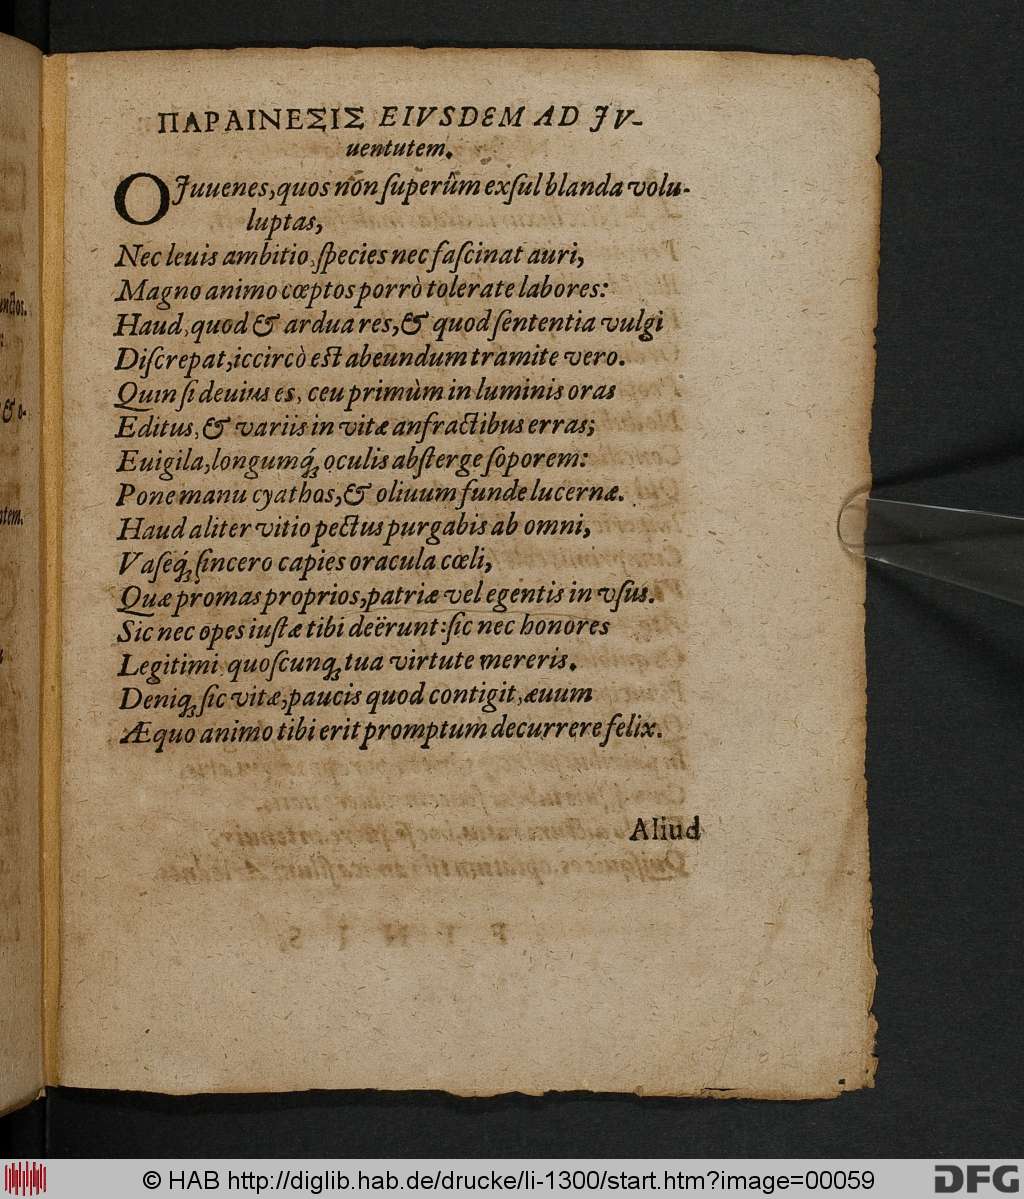 ΠΑΡΑΙΝΕΣΙΣ EIVSDEM AD JV-
uentutem.
O Juuenes, quos non superûm exsul blanda volu-
luptas,
Nec leuis ambitio, species nec fascinat auri,
Magno animo cœptos porrò tolerate labores:
Haud, quod & ardua res, & quod sententia vulgi
Discrepat, iccircò est abeundum tramite vero.
Quin si deuius es, ceu primùm in luminis oras
Editus, & variis in vitæ anfractibus erras;
Euigila, longumq́ꝫ oculis absterge soporem:
Pone manu cyathos, & oliuum funde lucernæ.
Haud aliter vitio pectus purgabis ab omni,
Vaseq́ꝫ sincero capies oracula cœli,
Quæ promas proprios, patriæ vel egentis in vsus.
Sic nec opes iustæ tibi deërunt: sic nec honores
Legitimi quoscunqꝫ tua virtute mereris.
Deniqꝫ sic vitæ, paucis quod contigit, æuum
Æquo animo tibi erit promptum decurrere felix.
Aliud
nctos.
& o-
tem.
© HAB http://diglib.hab.de/drucke/li-1300/start.htm?image=00059
DFG